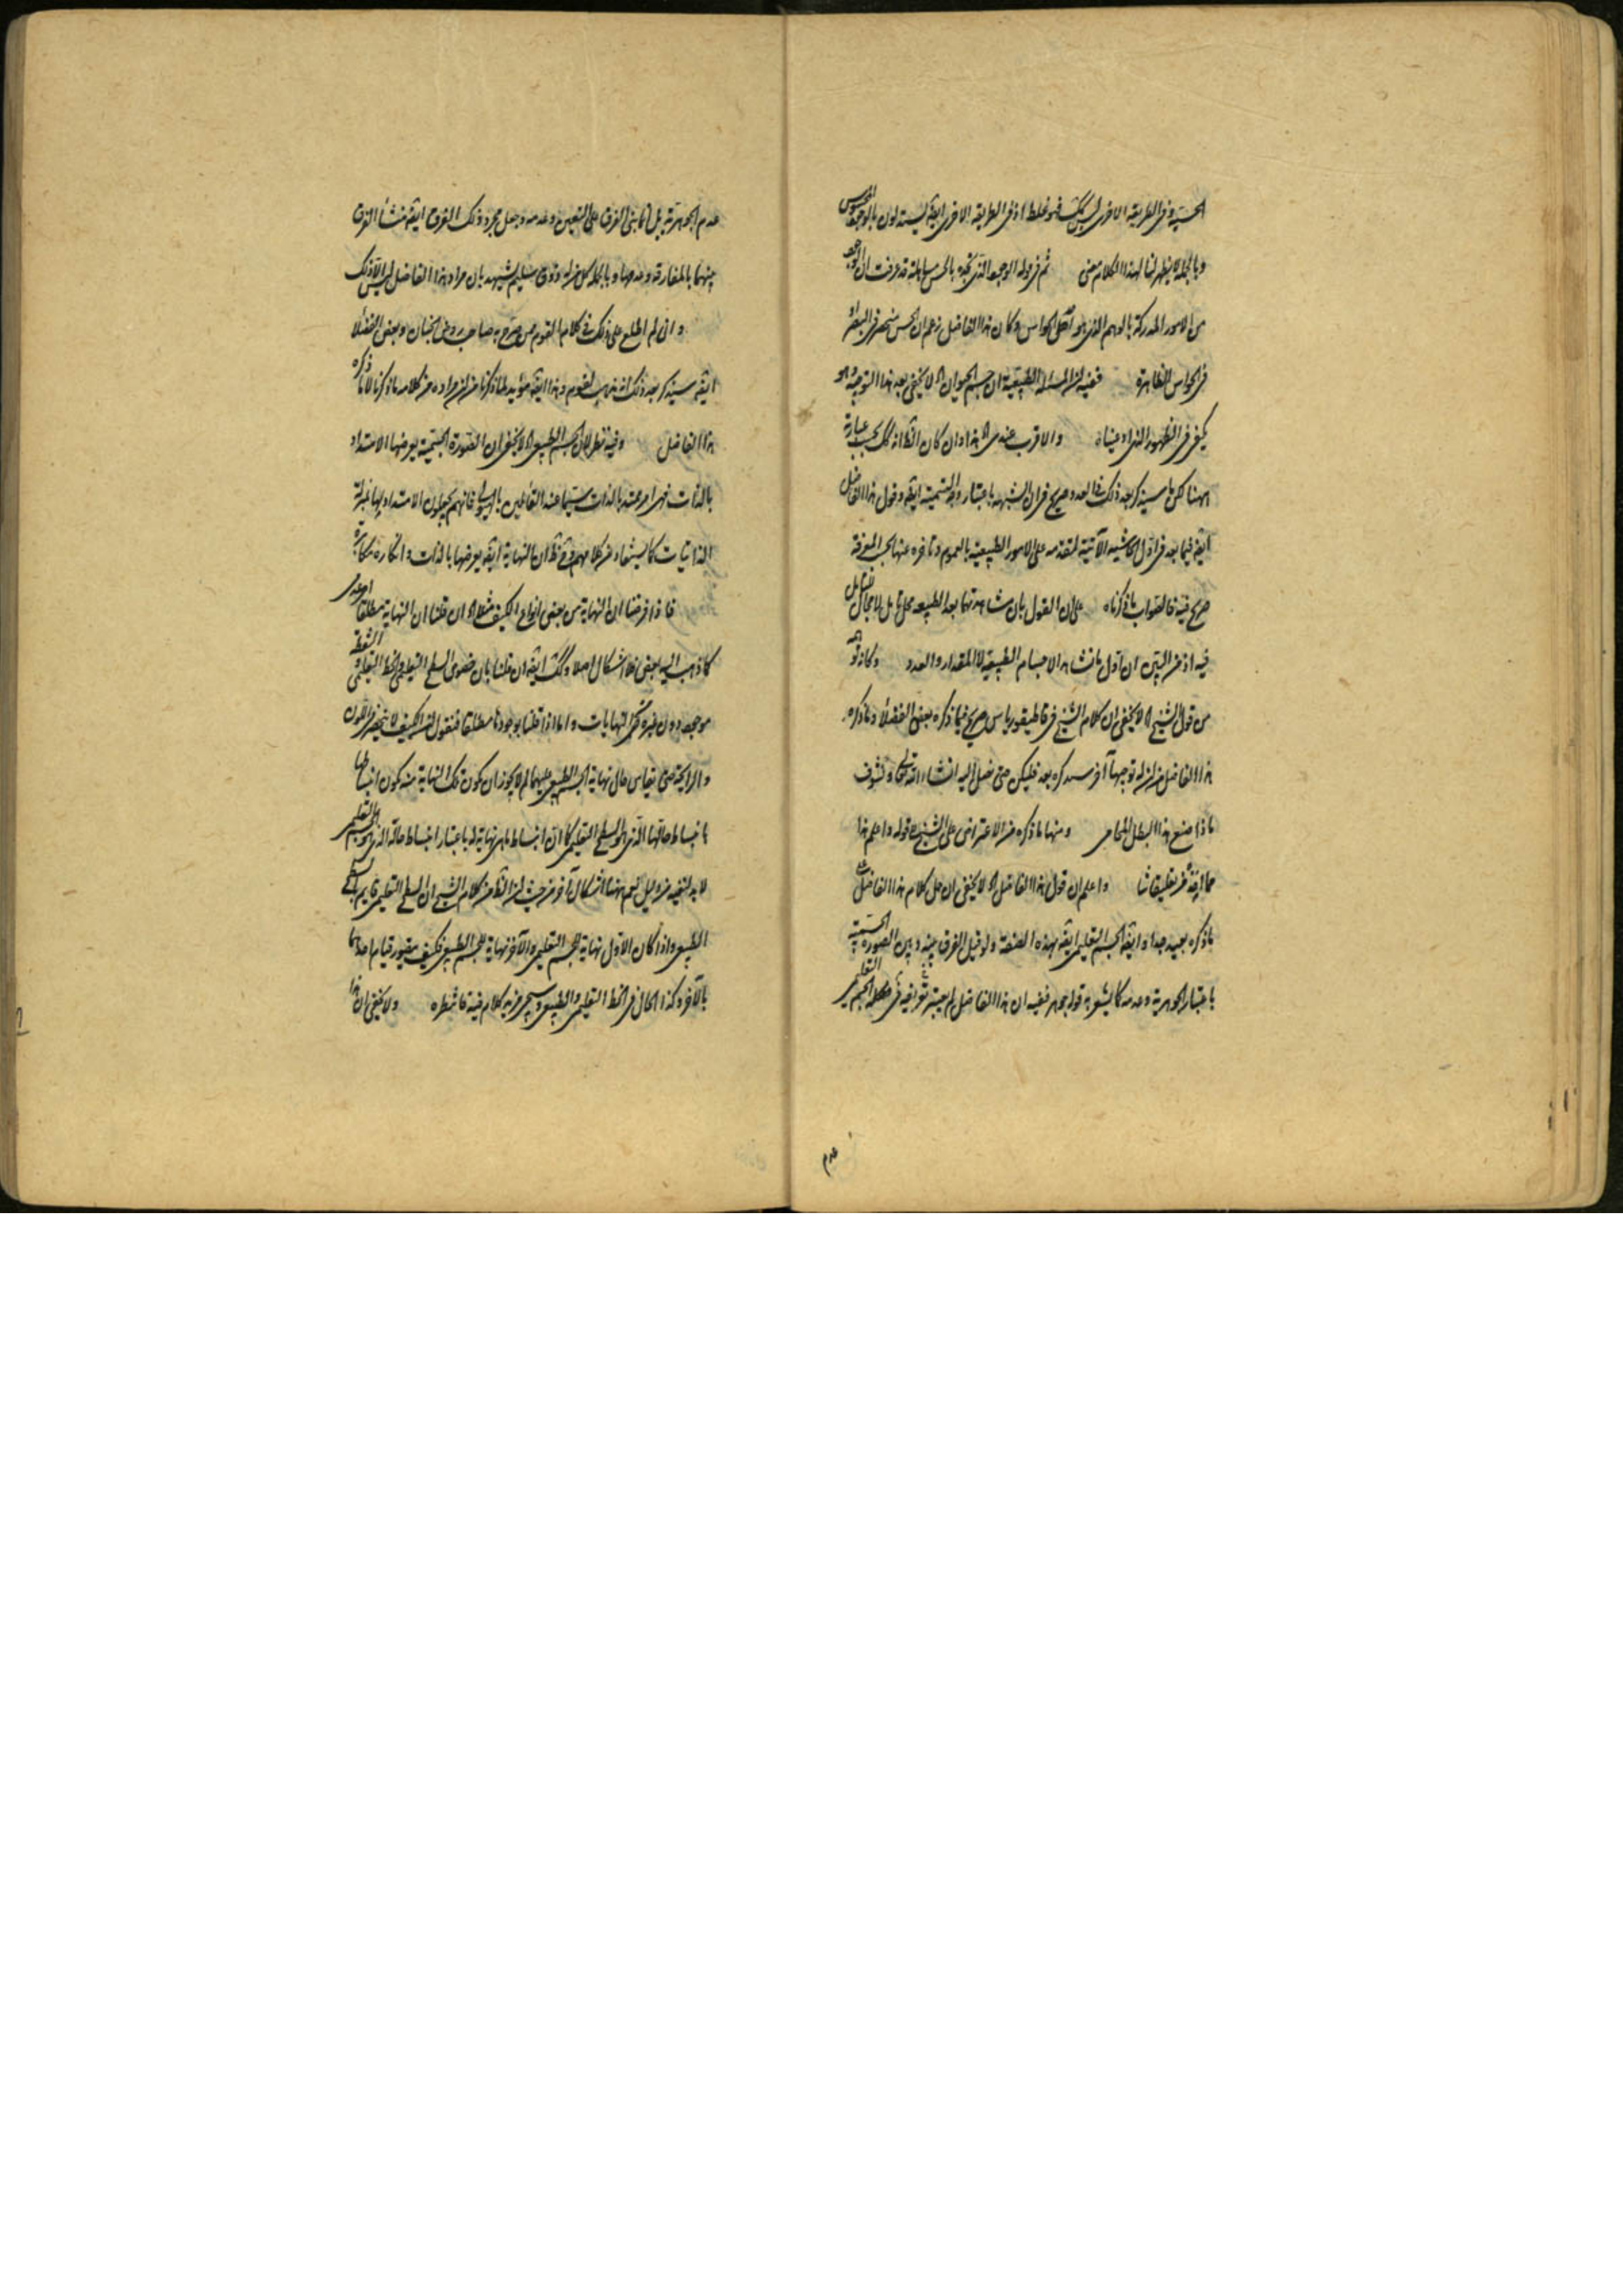 الحسية وفى الطريقة الاخرى ليس كك فهو غلط اذ فى الطريقة الاخرى ايضا يستدلون بالوجود المحسوس
وبالجملة لا يظهر لنا لهذا الكلام معنى ثم فى قوله الوجود الذى نجده بالحس مساهلة قد عرفت ان الوجود
من الامور المدركة بالوهم الذى هو اصل الحواس وكان هذا الفاضل زعم ان الحس منحصر فى البصر او
فى الحواس الظاهرة ففيه ان المسئلة الطبيعية ان جسم الحيوان الخ لا يخفى بعد هذا التوجيه وهو
كيفى فى الظهور الذى ادعيناه والاقرب عندى الخ هذا وان كان الظ انه كك بحسب عبارة
ههنا لكن ما سيذكر بعد ذلك فى العدد صريح فى ان الشبهة باعتبار وجه التسمية ايضا وقول هذا الفاضل
ايضا فيما بعد فى اول الحاشية الآتية لمتقدمة على الامور الطبيعية بالعموم وتاخره عنها بحسب المعرفة
صريح فيه فالصواب ما ذكرناه على ان القول بان مشاهدتها بعد الطبيعة محل تامل لا مجال للتامل
فيه اذ من البين ان اول ما نشاهد الاجسام الطبيعية لا المقدار والعدد وكاد توهمه
من قول الشيخ الخ لا يخفى ان كلام الشيخ فى قاطيغورياس صريح فيما ذكره بعض الفضلا وما ذكره
هذا الفاضل من ان له توجيها آخر سنذكره بعد فليكن حتى نصل اليه انشاء الله تعالى ونشوف
ماذا صنع هذا البطل المحامى ومنها ما ذكره من الاعتراض على الشيخ قوله واعلم هذا
مما لزمه فى تعليقاتنا واعلم ان قول هذا الفاضل الخ لا يخفى ان حمل كلام هذا الفاضل على
ما ذكره بعيد جدا وايضا الجسم التعليمى ايضا بهذه الصفة ولو قيل الفرق بينه وبين الصورة الجسمية
باعتبار الجوهرية وعدمه كما يشعر به قوله جوهر ففيه ان هذا الفاضل لم يعتبر فى تعريفه فى الجسم التعليمى
عدم
عدم الجوهرية بل انما بنى الفرق على التعين وعدمه وجعل مجرد ذلك الفرق ايضا منشأ الفرق
بينهما بالمفارقة وعدمها وبالجملة كل من له ذوق سليم يشهد بان مراد هذا الفاضل ليس الا ذلك
وانى لم اطلع على ذلك فى كلام القوم صرح به صاحب روض الجنان وبعض الفضلا
ايضا سيذكر بعد ذلك انه مذهب القوم وهذا ايضا مؤيد لما ذكرنا من ان مراده من كلامه ما ذكرنا لا ما ذكره
هذا الفاضل وفيه نظر لان الجسم الطبيعى الخ لا يخفى ان الصورة الجسمية يعرضها الامتداد
بالذات فهى امر ممتد بالذات سيما عند القائلين بالهيولى فانهم يجعلون الامتداد لها بمنزلة
الذاتيات كما يستفاد من كلامهم فح نظ ان النهاية ايضا يعرضها بالذات وانكاره مكابرة
فاذا فرضنا ان النهاية من بعض انواع الكيف مثلا الخ ان قلنا ان النهاية مطلقا امر عدمى
كما ذهب اليه بعض فلا اشكال اصلا وكك ايضا ان قلنا بان خصوص السطح التعليمى والخط التعليمى والنقطة
موجود دون غيره من النهايات واما اذا قلنا بوجودها مطلقا فنقول ان الكيف لا ينحصر فى اللون
والرايحة حتى يقاس حال نهاية الجسم الطبيعى عليهما لم لا يجوز ان يكون تلك النهاية منه يكون انبساطها
بانبساط حالتها الذى هو السطح التعليمى كما ان انبساط ما هى نهاية له باعتبار انبساط حاله الذى هو الجسم التعليمى
لا بد لنفيه من دليل نعم ههنا اشكال آخر من حيث ان الظ من كلام الشيخ ان السطح التعليمى قايم بالسطح
الطبيعى واذا كان الاول نهاية للجسم التعليمى والآخر نهاية للجسم الطبيعى فكيف يتصور قيام احدهما
بالآخر وكذا الحال فى الخط التعليمى والطبيعى وسيجىء مزيد كلام فيه فانتظره ولا يخفى ان هذا